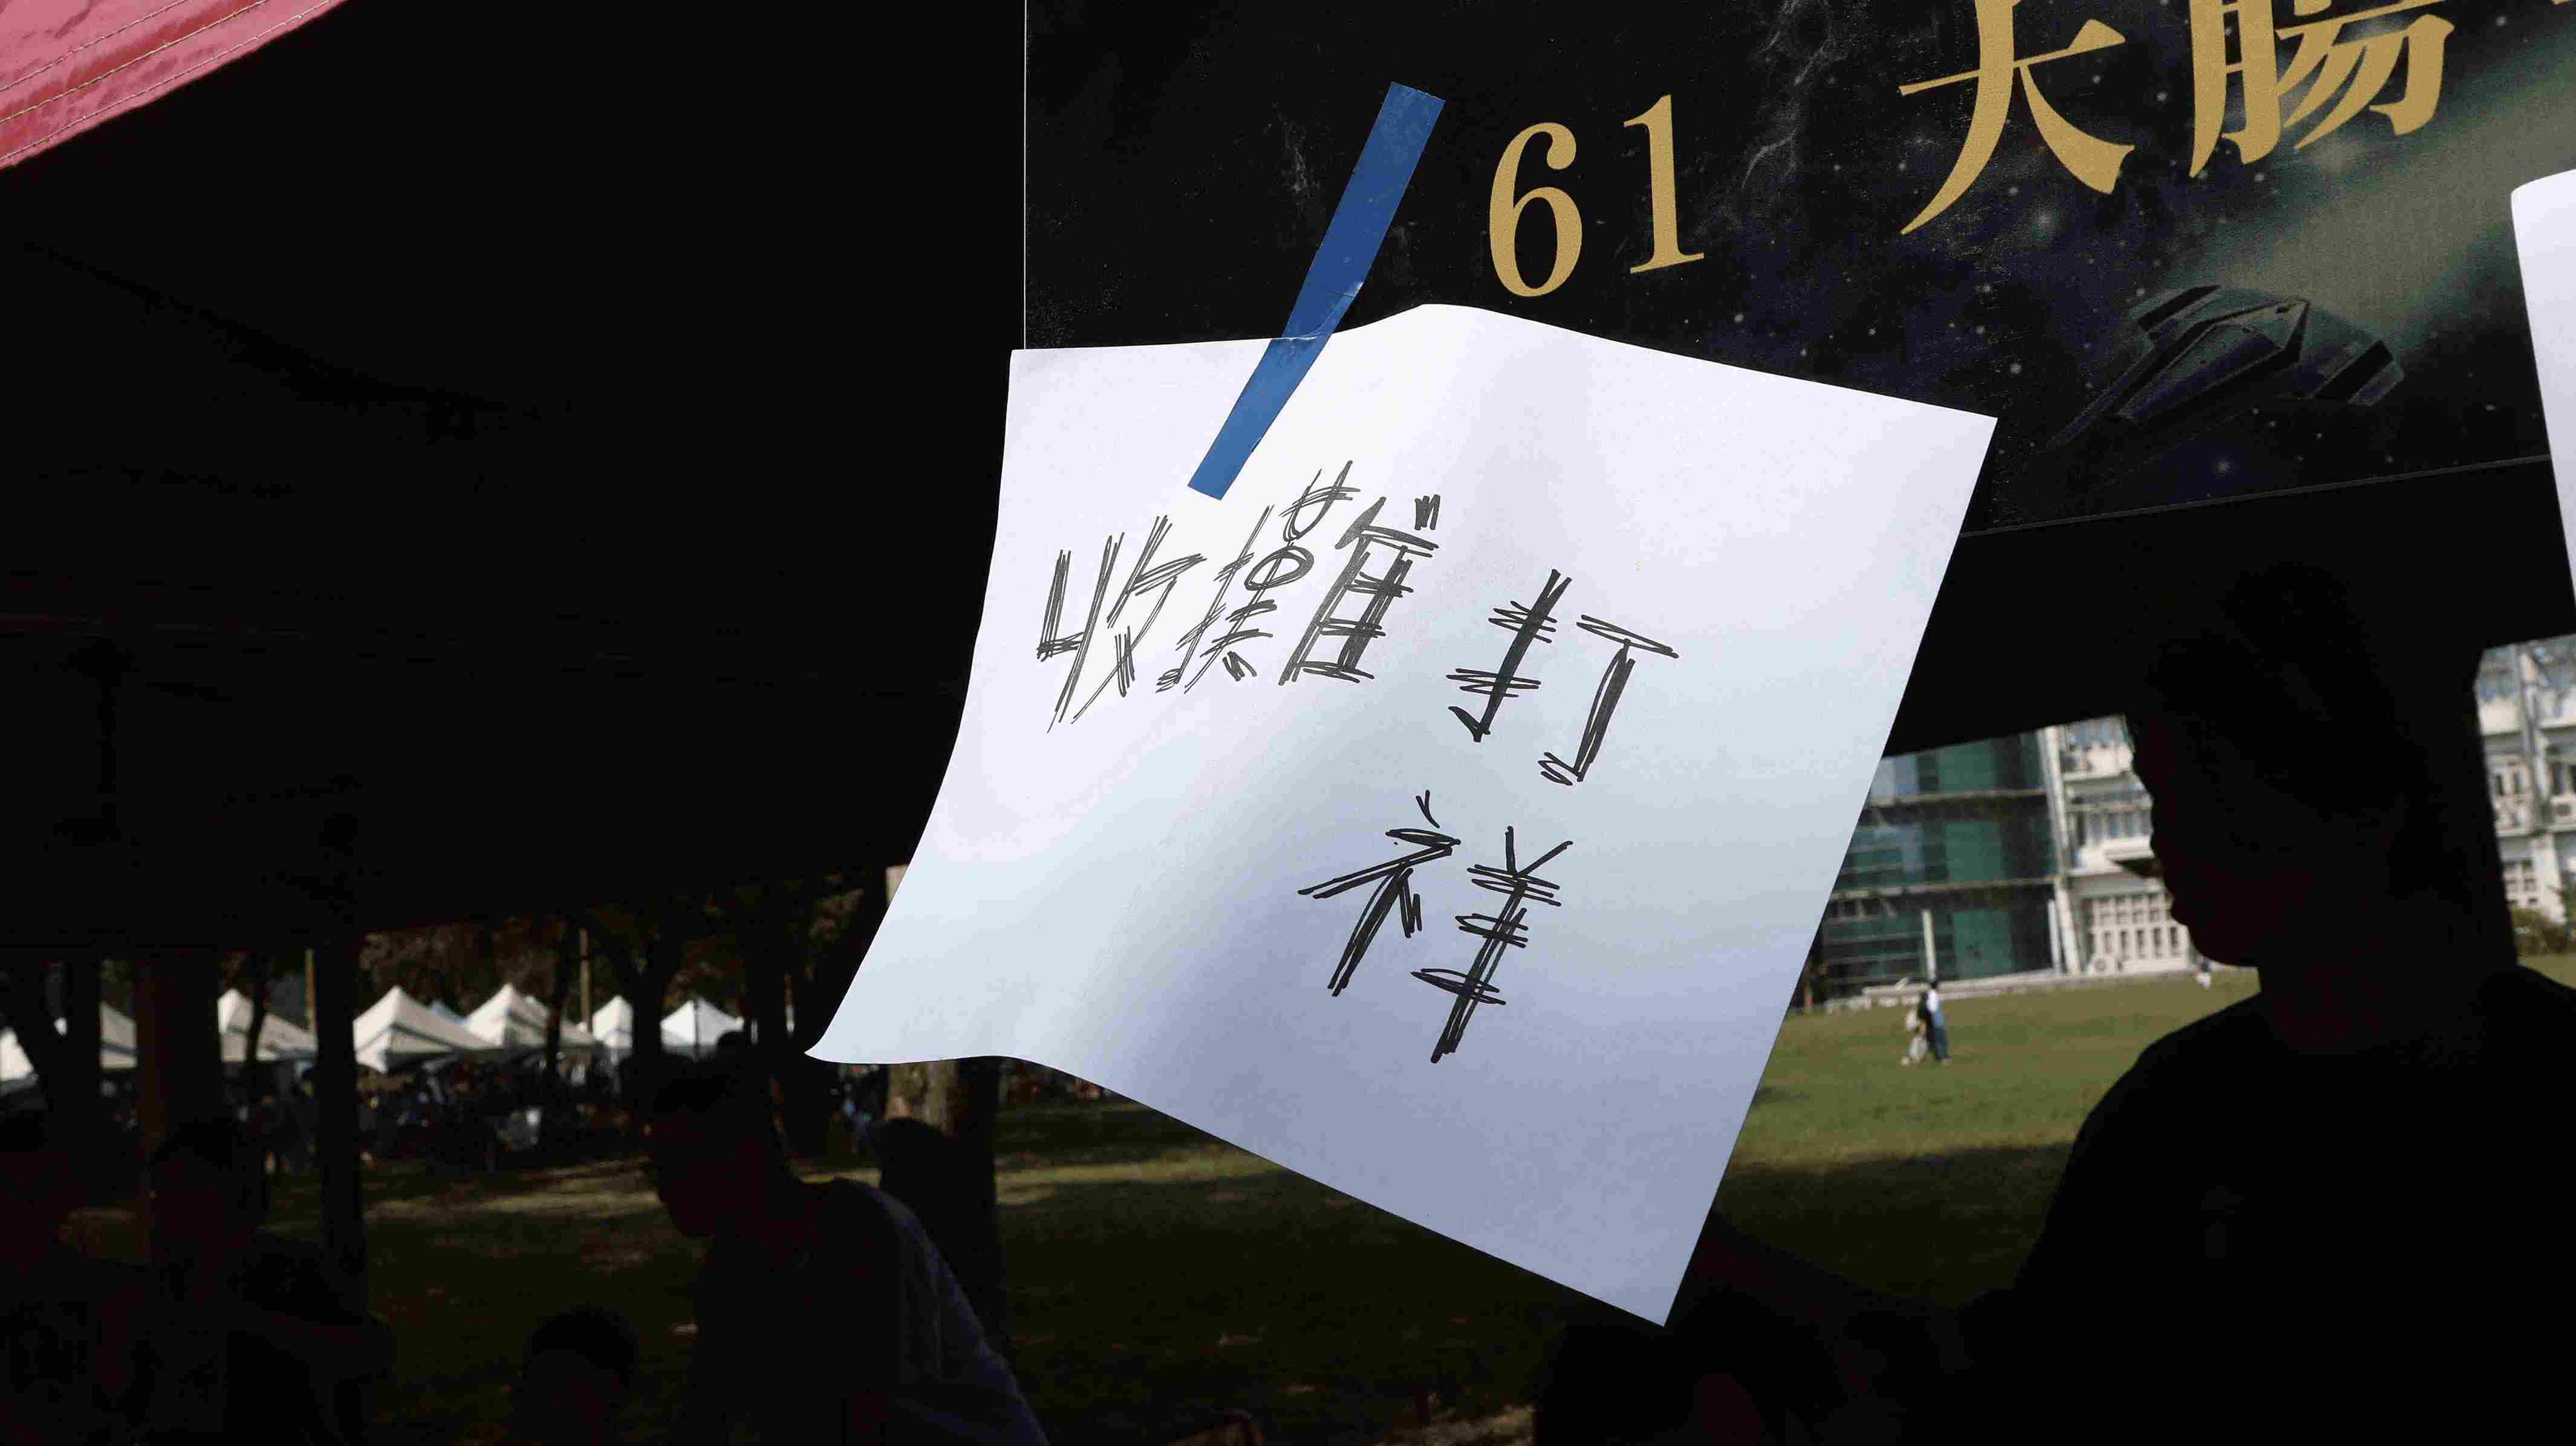 61 大腸
收攤 打
祥